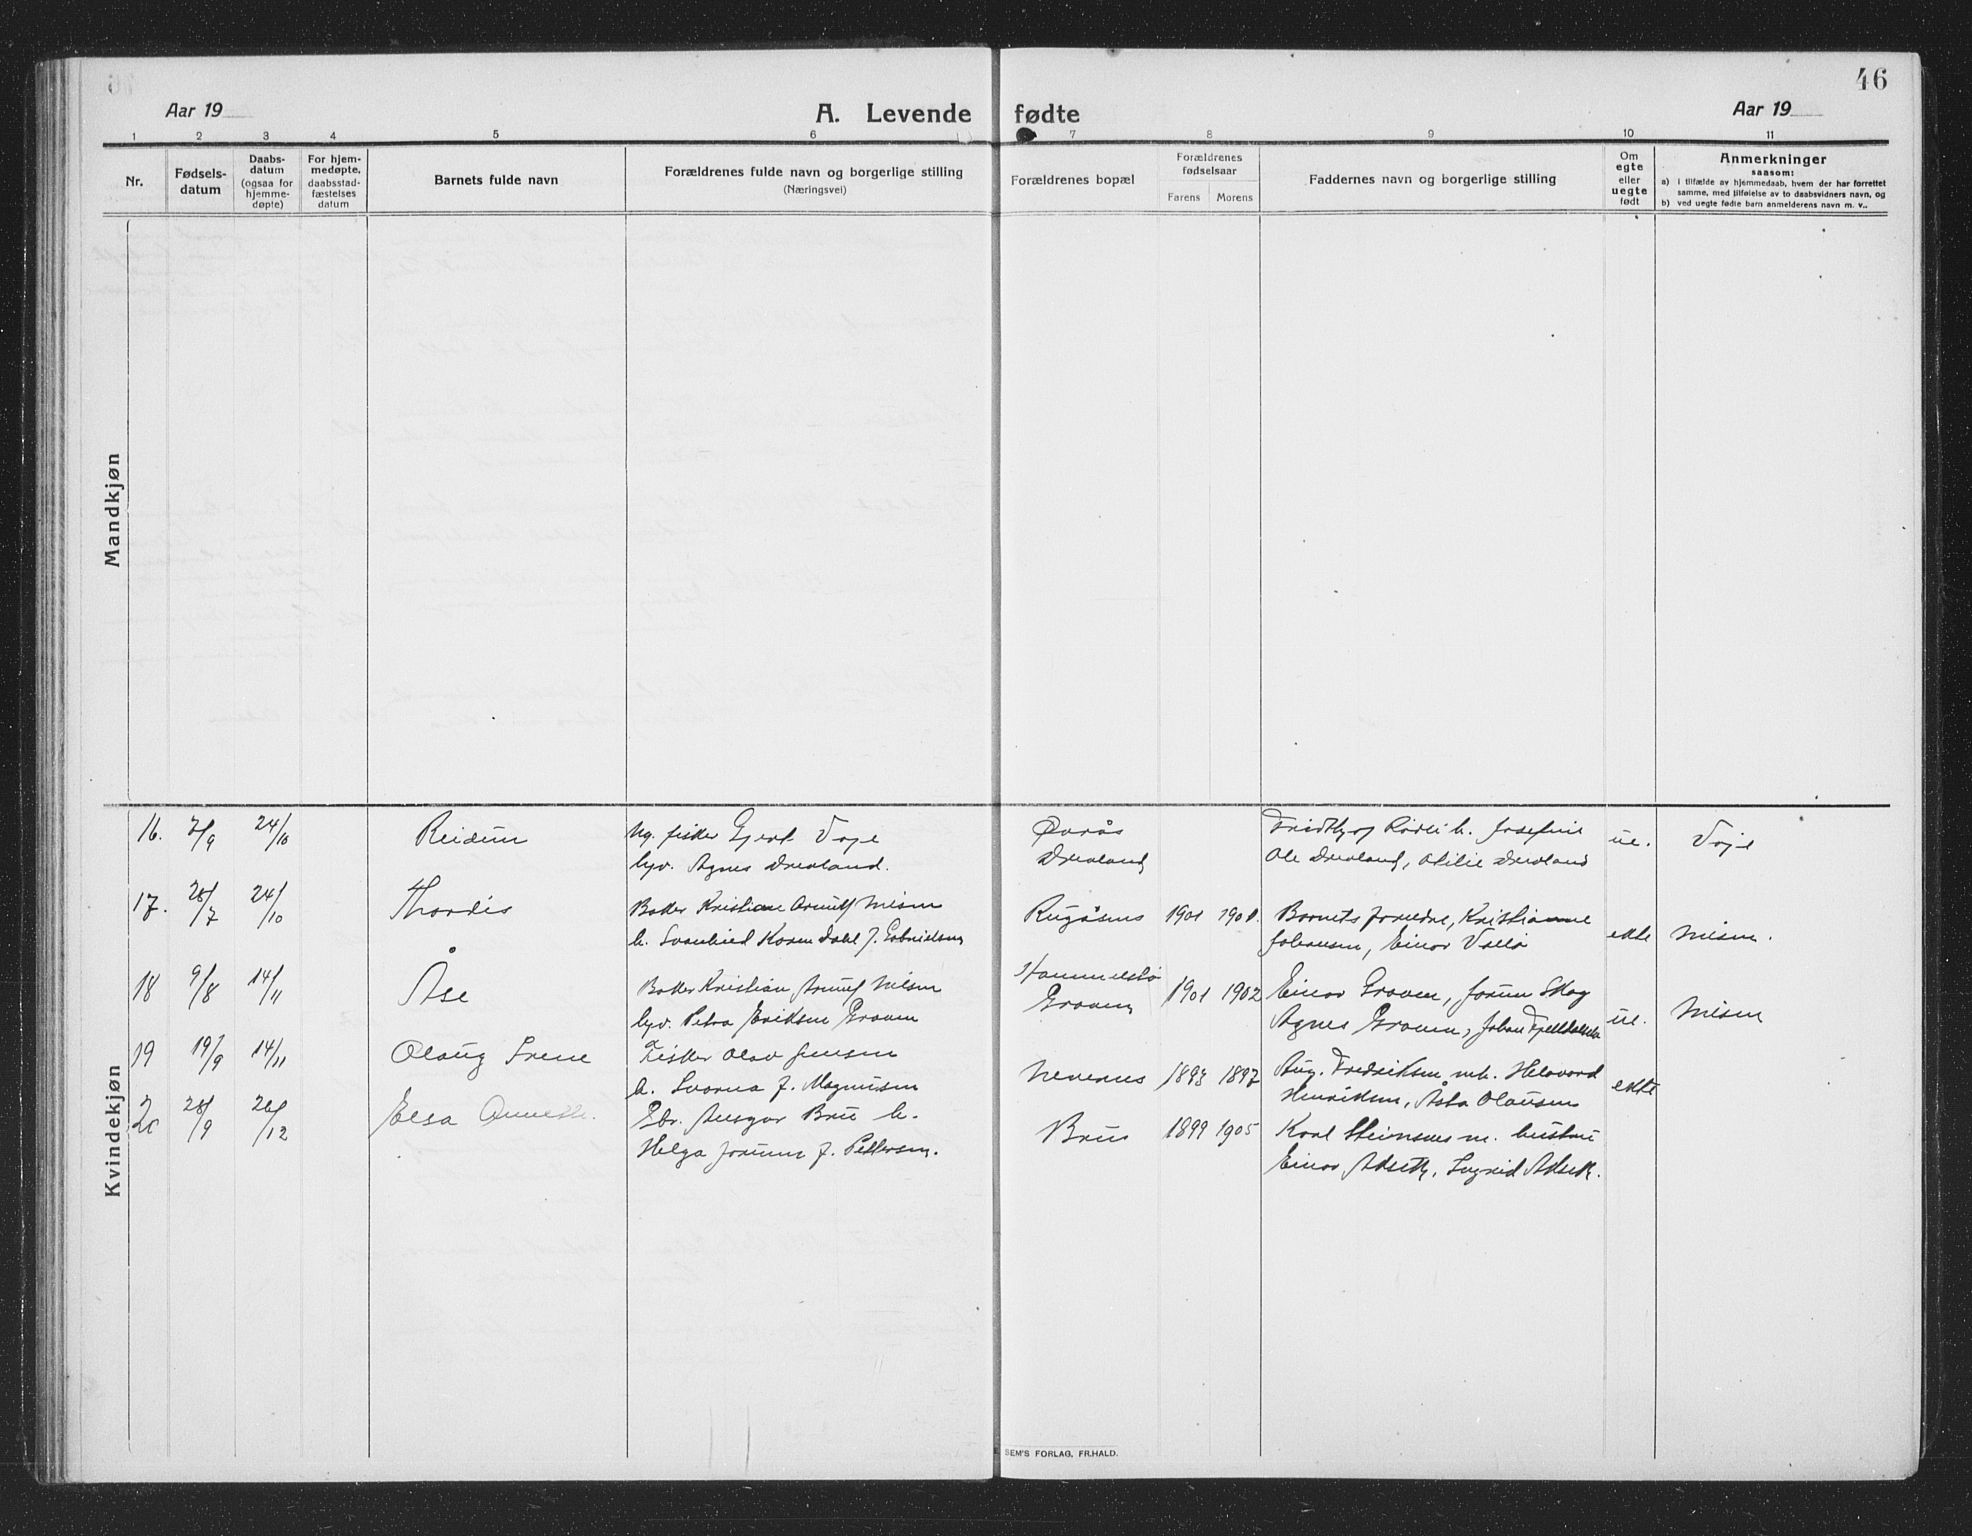 46
Aar 19
A. Levende
fødte
Aar 19
1 2 3 4 5 6 7 8 9 10 11
Nr.
Fødsels-
datum
Daabs-
datum
(ogsaa for
hjemme-
døpte)
For hjem-
medøpte,
daabsstad-
fæstelses
datum
Barnets fulde navn
Forældrenes fulde navn og borgerlige stilling
(Næringsvei)
Forældrenes bopæl
Forældrenes
fødselsaar
Farens Morens
Faddernes navn og borgerlige stilling
Om
egte
eller
uegte
født
Anmerkninger
saasom:
a) i tilfælde av hjemmedaab, hvem der har forrettet
samme, med tilføielse av to daabsvidners navn, og
b) ved uegte fødte barn anmelderens navn m. v..
Mandkjøn
Kvindekjøn
16. 7/9 24/10 Reidun
Ug. fisker Gjert Voje
Agnes Drevland.
Drevland
Josefine
Ole Drevland, Otilie Drevland
ue. Voje
17. 28/7 24/10 Thordis
Baker Kristian Nilsen
h. Svanhild Karen Dahl f. Gabrielsen
1901 1901.
Barnets forældre, Kristianne
Johansen, Einar
ekte Nilsen.
18 9/8 14/11 Åse
Baker Kristian Nilsen
Petra Eriksen Graven
Graven
1901 1902
Einar Graven, Jorun Skog
Agnes Graven, Johan
ue. Nilsen
19 19/9 14/11 Olaug Irene
Fisker Olav Jensen
h. f. Magnusen
1893 1897
Aug. Fredriksen
Henriksen, Åsta Olausen
ekte
20 28/9 26/12 Elsa
Gbr. Ansgar Bru h.
Helga f. Pettersen.
Brus 1899 1905
Karl m. hustru
Einar Adseth, Ingrid Adseth.
SEM'S FORLAG, FR.HALD.